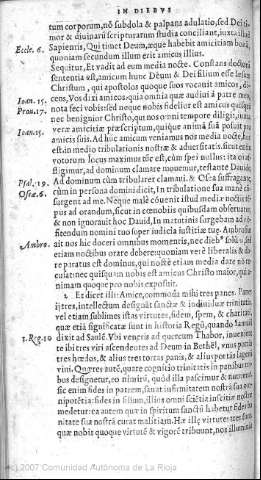 IN DIEBVS
tum corporum, nõ subdola & palpans adulatio, sed Dei ti-
mor & diuinarũ scripturarum studia conciliant, iuxta illud
Eccle. 6. Sapientis, Qui timet Deum, æque habebit amicitiam bonã,
quoniam secundum illum erit amicus illius.
Sequitur, Et vadit ad eum media nocte. Constans doctorũ
sententia est, amicum hunc Deum & Dei filium esse Iesum
Christum, qui apostolos quoque suos vocauit amicos, di-
Ioan. 15. cens, Vos dixi amicos: quia omnia quæ audiui à patre meo,
Prou. 17. nota feci vobis: sed neque nobis fidelior est amicus quisquã
nec benignior Christo, qui nos omni tempore diligit, iuxta
Ioan. 15. veræ amicitiæ præscriptum, quique animã suã posuit pro
amicis suis. Ad hunc amicum veniamus nos media nocte, hoc
est in medio tribulationis nostræ & aduersitatis. sicut enim
votorum locus maximus tũc est, cùm spei nullus: ita cùm
fligimur, ad dominum clamare mouemur, testante Dauide,
Psal. 119. Ad dominum cùm tribularer clamaui. & Osea suffragatur,
Oseæ. 6. cùm in persona domini dicit, In tribulatione sua manè cõ-
surgent ad me. Neque malè cõuenit istud media noctis tẽ-
pus ad orandum, sicut in cenobiis quibusdam obseruatur,
& non ignorauit hoc Dauid, In matutinis surgebam ad cõ-
fitendum nomini tuo super iudicia iustitiæ tuæ. Ambrosius
Ambro. ait nos hic doceri omnibus momentis, nec dieb⁹ solũ, sed
etiam noctibus orare debere: quoniam verè liberalis & da-
re paratus est dominus, qui nobis etiam media nocte
culatẽ: nec quisquam nobis est amicus Christo maior, qui a-
nimam quoque pro nobis exposuit.
2. Et dicet illi: Amice, commoda mihi tres panes. Panes
istros, intellectum designãt sanctæ & indiuiduæ trinitatis,
vel etiam sublimes istas virtutes, fidem, spem, & charitatẽ,
quæ etiã significatæ sunt in historia Regũ, quando Samuel
1. Reg. 10 dixit ad Saulẽ. Vbi veneris ad quercum Thabor, inuenient
te ibi tres viri ascendentes ad Deum in Bethel, vnus portãs
tres hœdos, & alius tres tortas panis, & alius portãs lagenã
vini. Quæ res aut, quare cognitio trinitatis in panibus tri-
bus designetur, eò nimirũ, quòd illa pascimur & nutrimur:
sic enim fides in patrem, sanat infirmitatẽ nostrã sua om-
nipotẽtia: fides in filium, illius omni sciẽtia inscitiæ nostræ
medetur: ea autem quæ in spiritum sanctũ habetur fides bo-
nitate sua nostrã curat malitiam. Hæ illę virtutes tres dantur
quæ nobis quoque virtutẽ & vigorẽ tribuunt, nos illuminãt
(c) 2007 Comunidad Autónoma de La Rioja